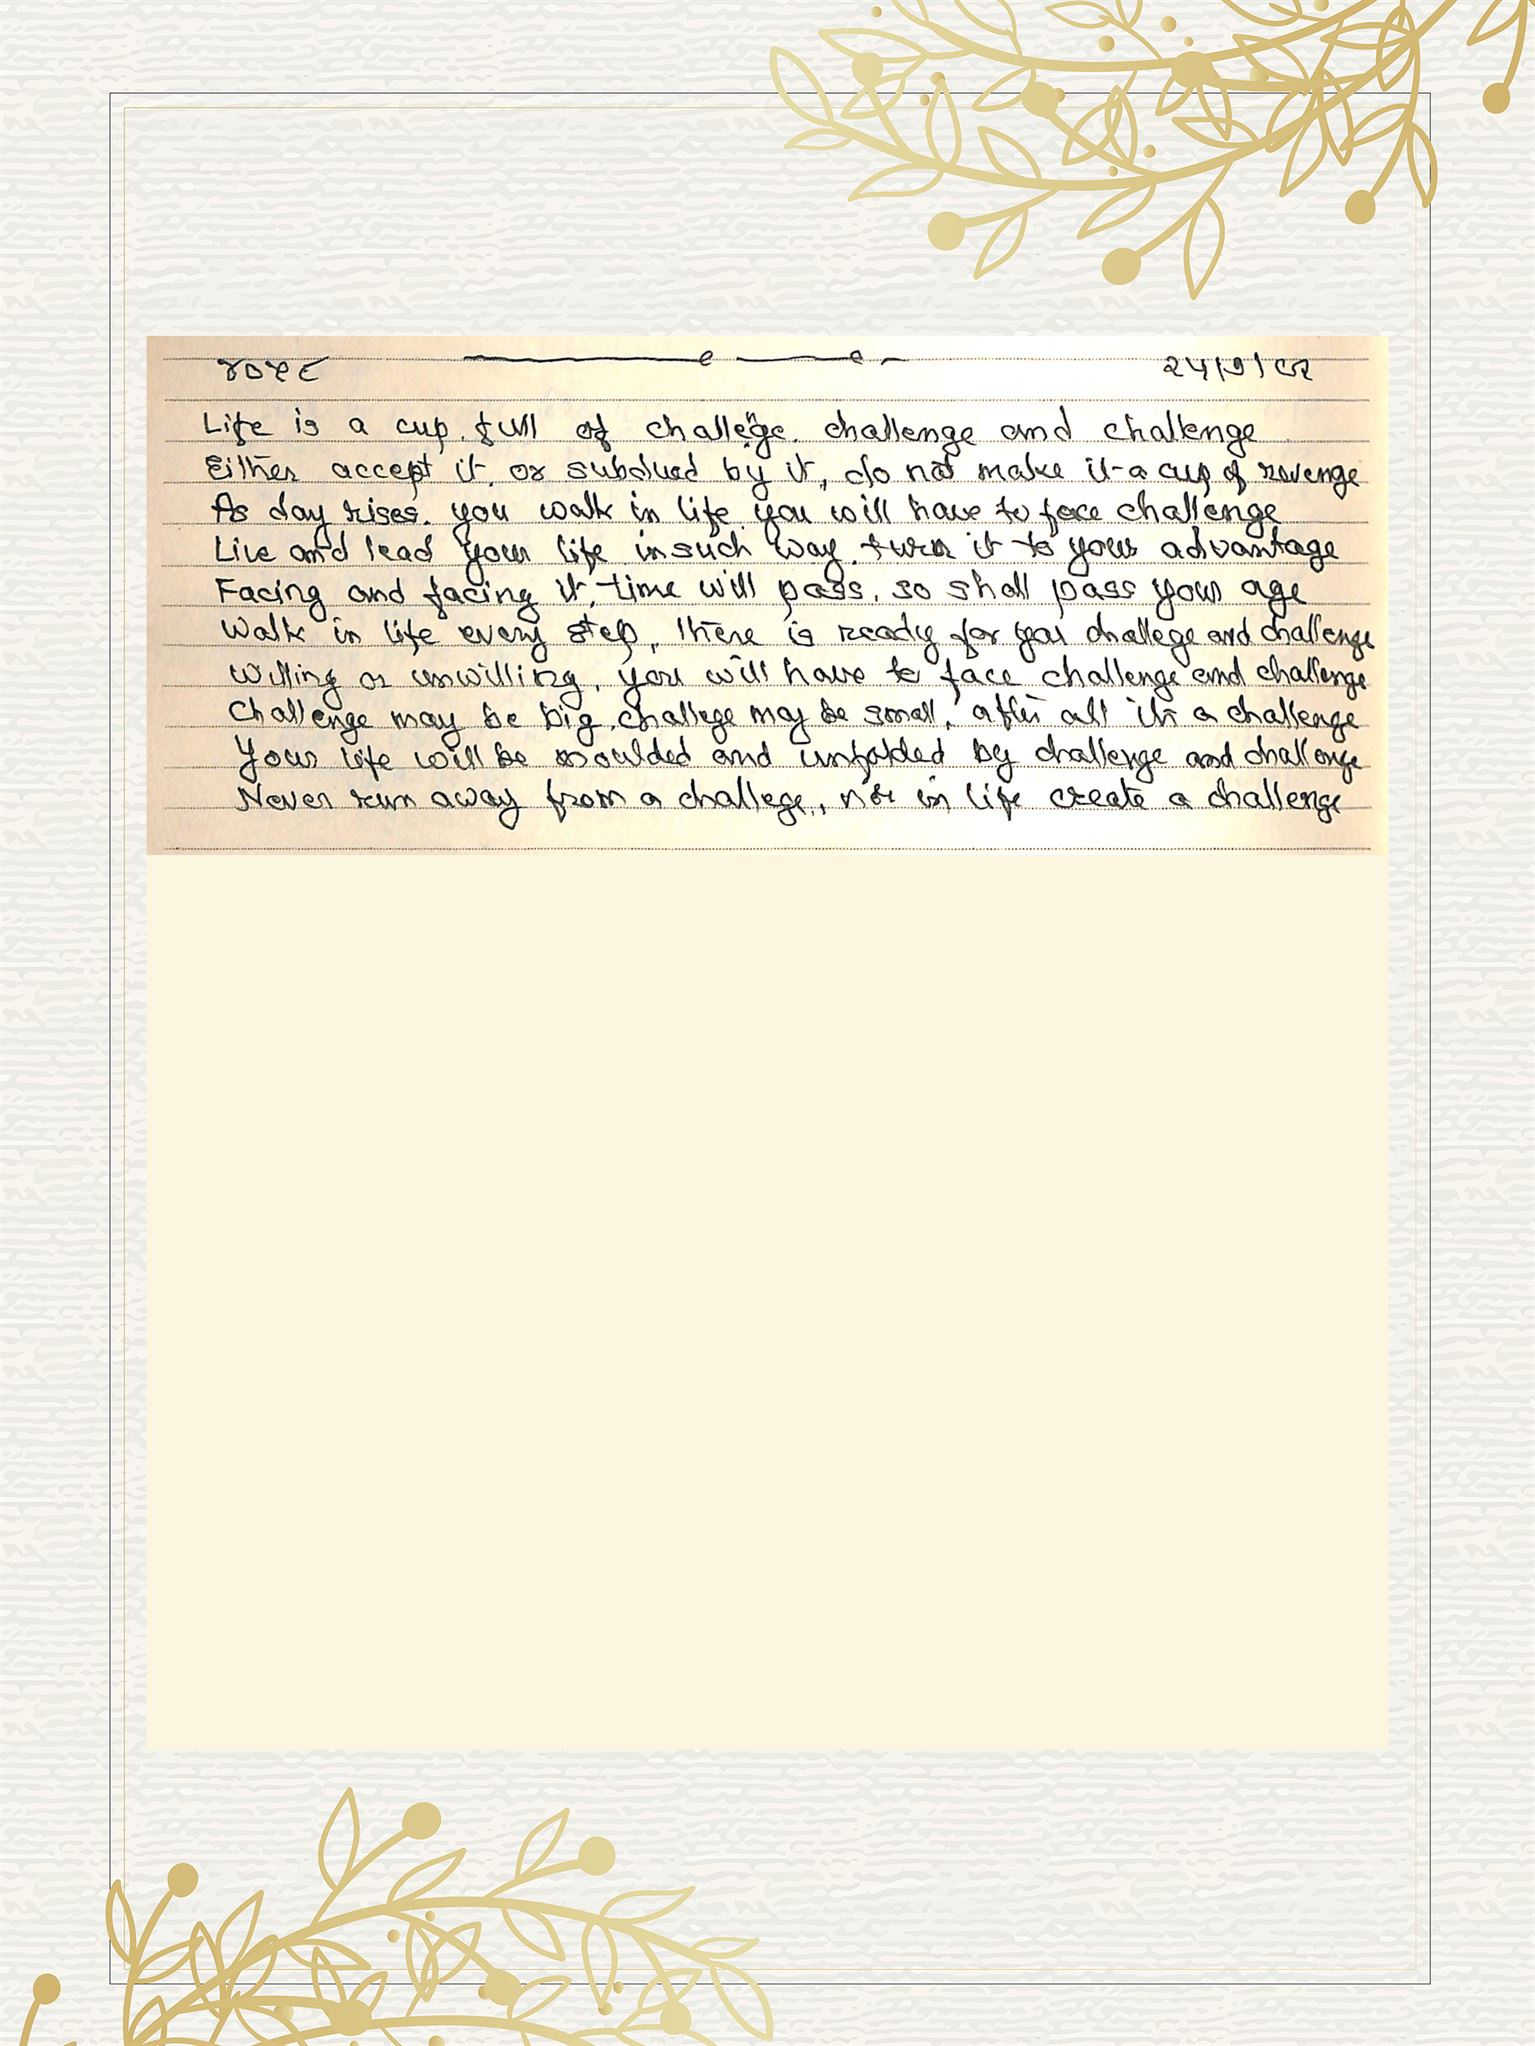 Life is a cup, full of challenge. challenge and challenge
Either accept it, or subdued by it, do not make it a cup of revenge
As day rises. you walk in life you will have to face challenge
Live and lead your life in such way. turn it to your advantage
Facing and facing it, time will pass, so shall pass your age
Walk in life every step, there is ready for you challege and challenge
Willing or unwilling, you will have to face challenge and challenge
Challenge may be big, challege may be small, after all its a challenge
Your life will be moulded and unfolded by challenge and challenge
Never run away from a challege, nor in life create a challenge